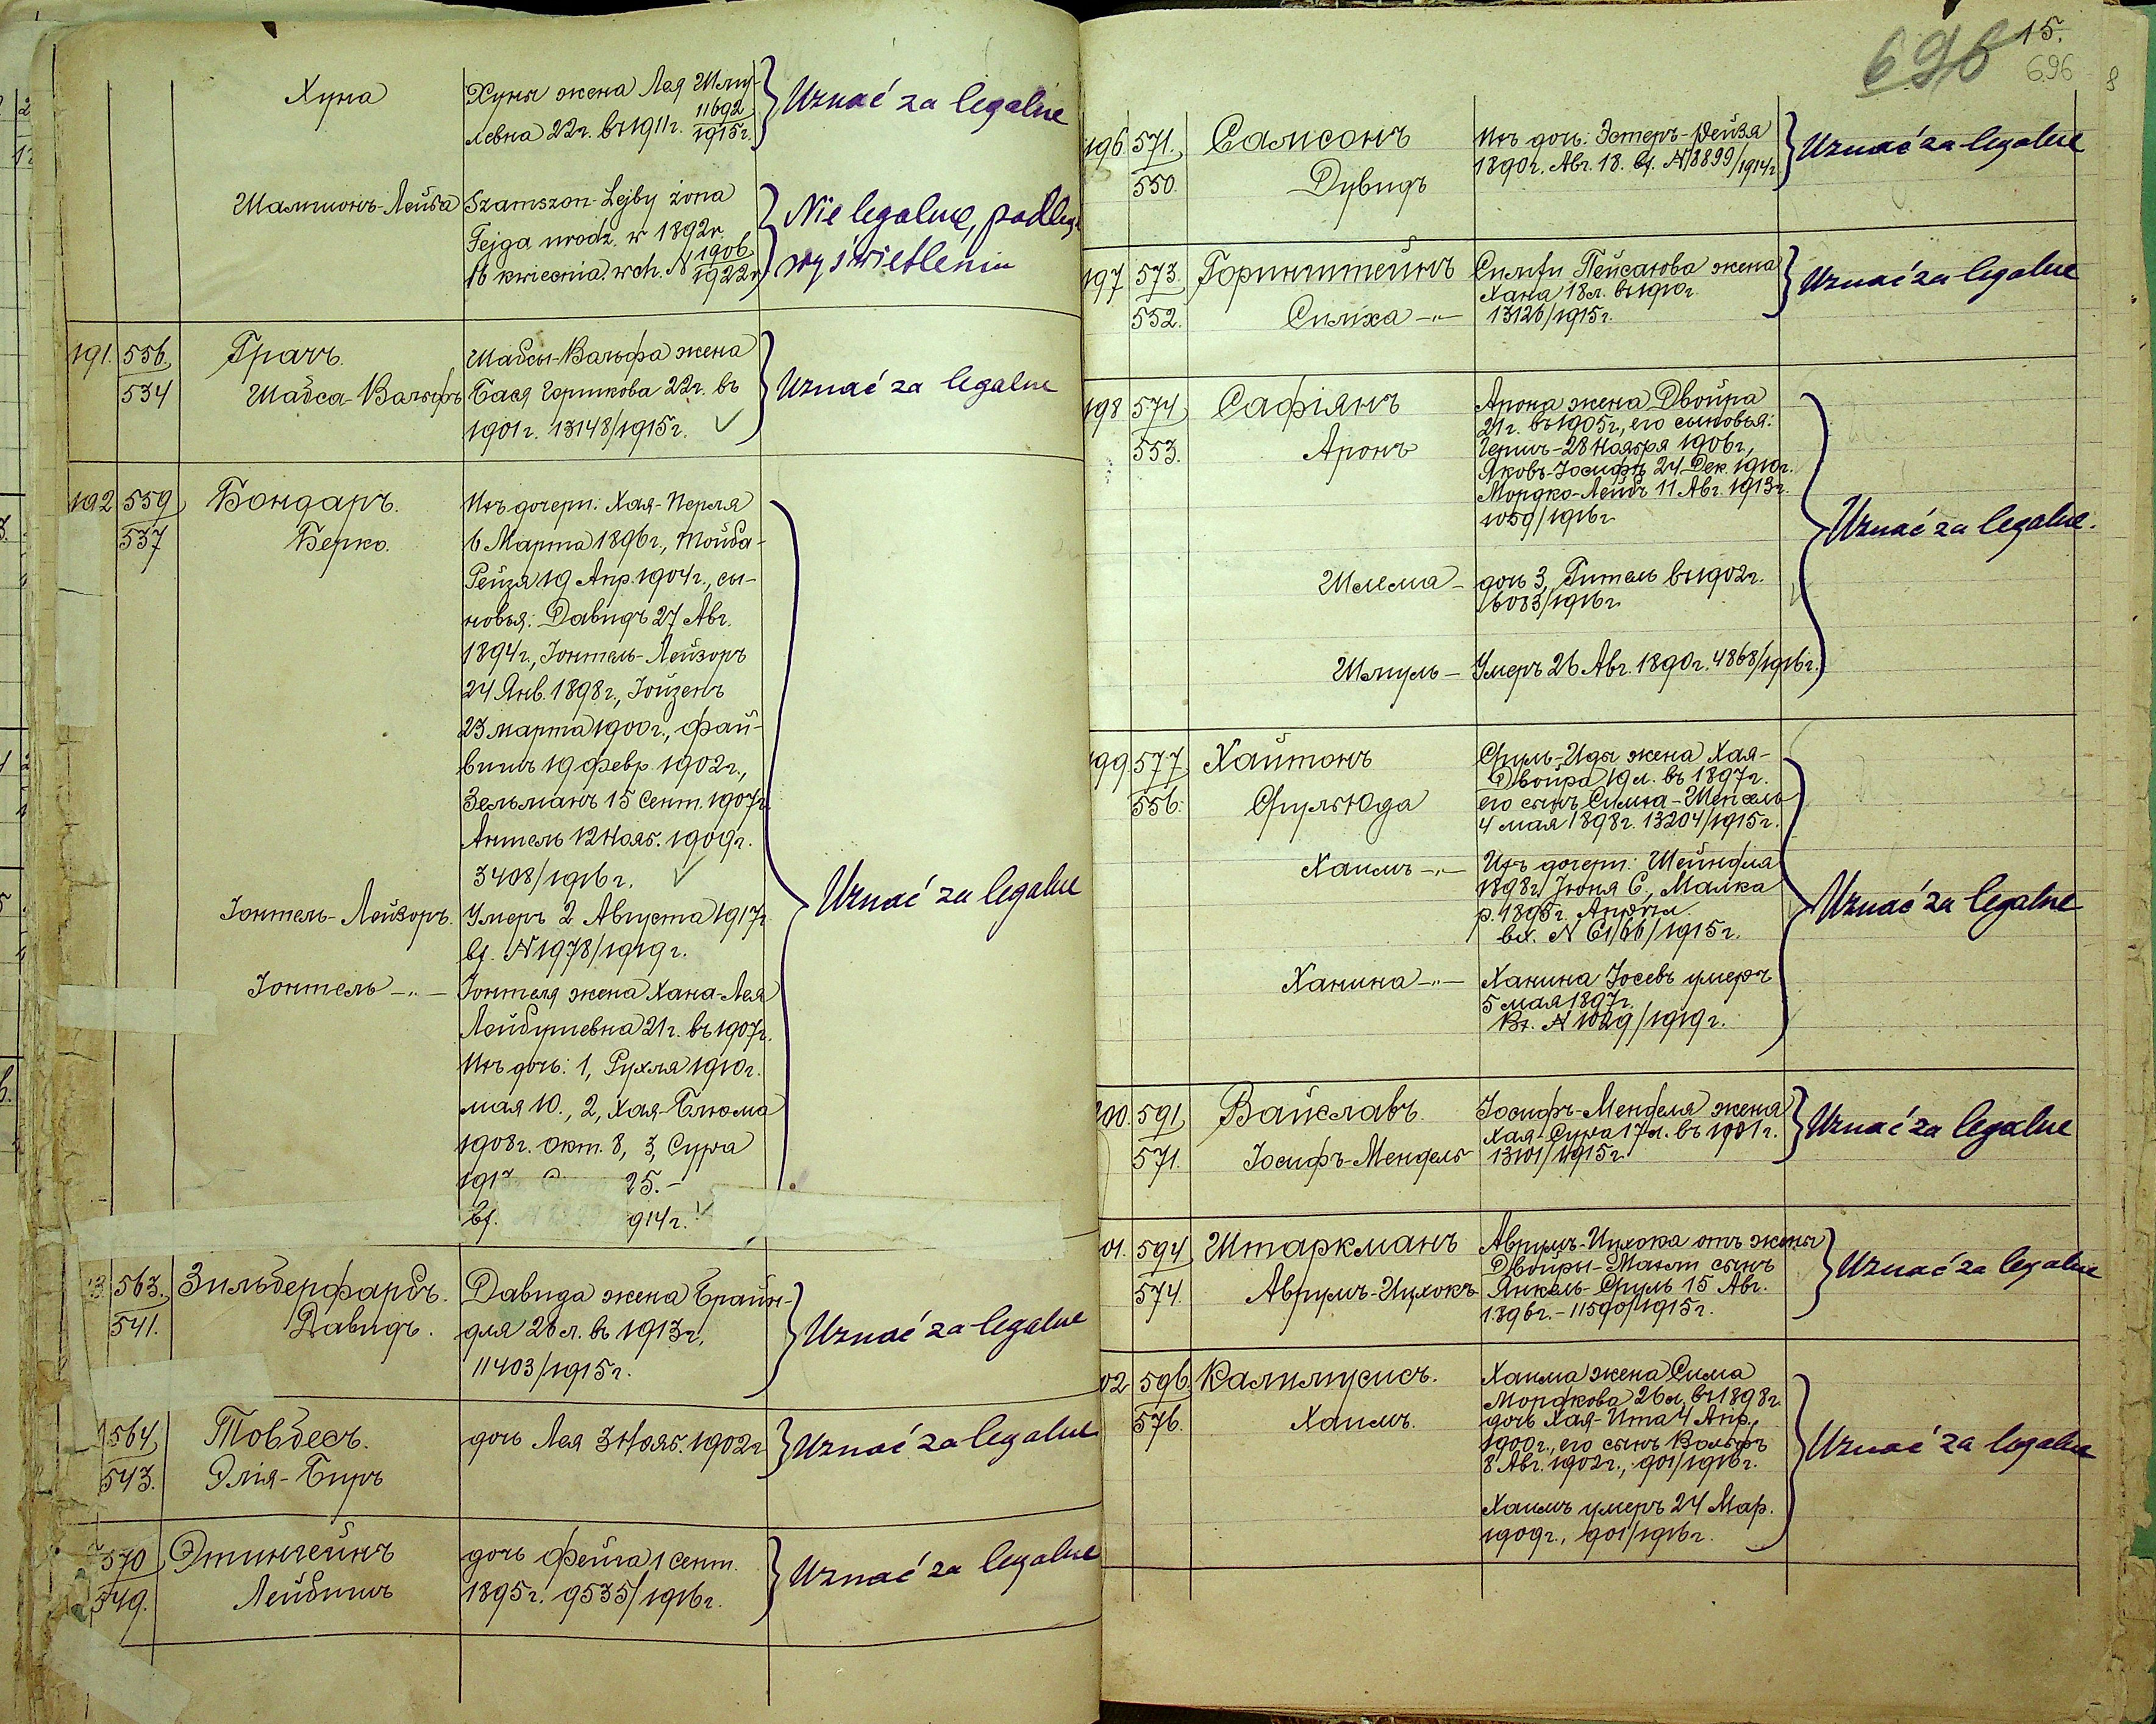 Хуна
Хуны жена Лея Шму-
левна 22г. въ 1911г. 11692/1915г.
Uznać za legalne
Шамшонъ-Лейба
Szamszon-Lejby żona
Fejga urodz. w 1892r.
16 kwiecnia. wch. N 1906/1922r.
Nie legalne, podlega
wyświetleniu
191. 556/534
Грачъ.
Шабса-Вальфъ
Шабсы-Вальфа жена
Бася Горшкова 22г. въ
1901г. 13148/1915г. ✓
Uznać za legalne
192 559/537
Бондаръ.
Берко.
Ихъ дочери: Хая-Перля
6 Марта 1896г., Тойба-
Рейзя 19 Апр. 1904г., сы-
новья: Давидъ 27 Авг.
1894г., Іонтель-Лейзоръ
24 Янв. 1898г., Іойзенъ
23 марта 1900г., Фай-
вишъ 19 февр. 1902г.,
Зельманъ 15 Сент. 1907г.
Антель 12 Нояб. 1909г.
3408/1916г. ✓
Іонтель-Лейзоръ.
Умеръ 2 Августа 1917г.
вх. N 1978/1919г.
Іонтель -"-
Іонтеля жена Хана-Лея
Лейбушевна 21г. въ 1907г.
Ихъ дочь: 1, Рухля 1910г.
мая 10., 2, Хая-Блюма
1908г. Окт. 8, 3, Сура
191 25.-
вх. 914г. ✓
Uznać za legalne
3. 563./541.
Зильберфарбъ.
Давидъ.
Давида жена Брайн-
для 26л. въ 1913г.
11403/1915г.
Uznać za legalne
564/543.
Товбесъ.
Элія-Биръ
дочь Лея 3 Нояб. 1902г.
Uznać za legalne
570/549.
Этингейнъ
Лейбишъ
дочь Фейга 1 Сент.
1895г. 9535/1916г.
Uznać za legalne
696 15.
696
8
196. 571./550.
Самсонъ
Дувидъ
Ихъ дочь: Эстеръ-Рейзя
1890г. Авг. 18. вх. N 8899/1914г.
Uznać za legalne
197 573./552.
Горинштейнъ
Симха -"-
Симхи Пейсахова жена
Хана 18л. въ 1910г.
13126/1915г.
Uznać za legalne
198 574/553.
Сафіянъ
Аронъ
Арона жена Двойра
21г. въ 1905г., его сыновья:
Гершъ-28 Ноября 1906г.,
Яковъ-Іосифъ 24 Дек. 1910г.
Мордко-Лейбъ 11 Авг. 1913г.
1059/1916г.
Шлема -
дочь 3, Гитель въ 1902г.
6083/1916г.
Шмуль -
Умеръ 26 Авг. 1890г. 4868/1916г.
Uznać za legalne.
199. 577/556.
Хайтонъ
Сруль-Юда
Сруль-Иды жена Хая-
Двойра 19л. въ 1897г.
его сынъ Симха-Шепсель
4 мая 1898г. 13204/1915г.
Хаимъ -"-
Ихъ дочери: Шейндля
1898г. Іюня 6., Малка
р. 1895г. Апрѣля.
вх. N 61/66/1915г.
Ханина -"-
Ханина Іосевъ умеръ
5 мая 1897г.
Вх. N 1029/1919г.
Uznać za legalne
200. 591/571.
Вайславъ.
Іосифъ-Мендель
Іосифъ-Менделя жена
Хая-Сура 17л. въ 1901г.
13101/1915г.
Uznać za legalne
01. 594/574.
Штаркманъ
Аврумъ-Ицхокъ
Аврумъ-Ицхока отъ жены
Двойры-Мати сынъ
Янкель-Сруль 15 Авг.
1896г. - 11590/1915г.
Uznać za legalne
02 596./576.
Калмусисъ.
Хаимъ.
Хаима жена Сима
Мордкова 26л. въ 1898г.
дочь Хая-Ита 4 Апр.
1900г., его сынъ Вольфъ
8 Авг. 1902г., 901/1916г.
Хаимъ умеръ 24 Мар.
1909г., 901/1916г.
Uznać za legalne